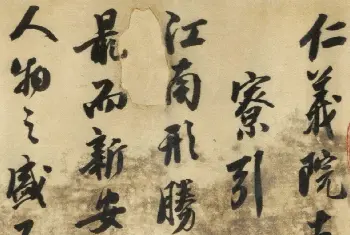 仁義院
寮引
江南形勝
最而新安
人物之盛